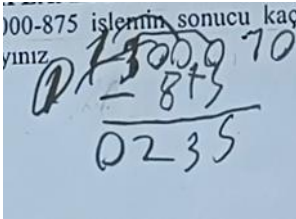 000-875 işlemin sonucu kaç
yınız
000 10
- 875
0235